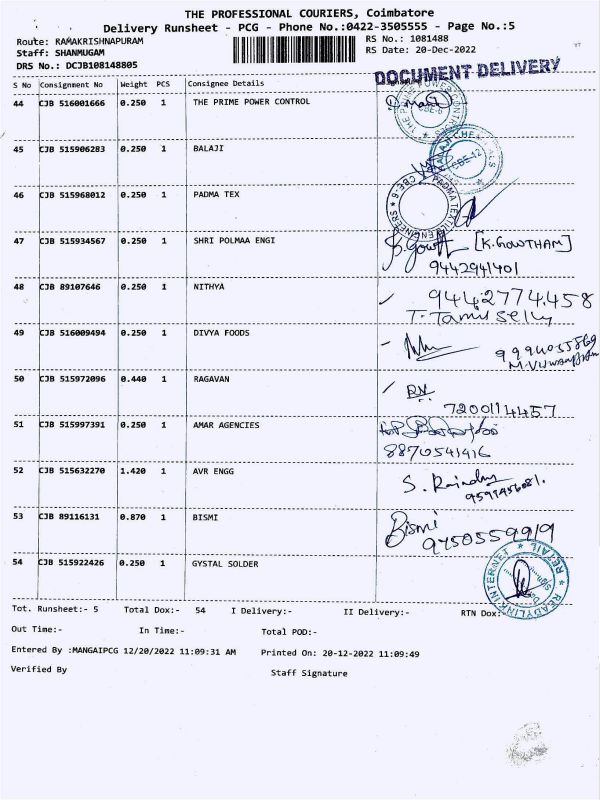 THE PROFESSIONAL COURIERS, Coimbatore
Delivery Runsheet - PCG - Phone No.:0422-3505555 - Page No.:5
Route: RAMAKRISHNAPURAM RS No.: 1081488
Staff: SHANMUGAM RS Date: 20-Dec-2022
DRS No.: DCJB108148805
DOCUMENT DELIVERY
S No Consignment No Weight PCS Consignee Details
44 CJB 516001666 0.250 1 THE PRIME POWER CONTROL
CBE-6
45 CJB 515906283 0.250 1 BALAJI
CBE-12
46 CJB 515968012 0.250 1 PADMA TEX
CBE-6 PADMA TEX ENGINEERS
47 CJB 515934567 0.250 1 SHRI POLMAA ENGI
[K.GOWTHAM]
9442941401
48 CJB 89107646 0.250 1 NITHYA
9442774458
T. Tamil Selvy
49 CJB 516009494 0.250 1 DIVYA FOODS
50 CJB 515972096 0.440 1 RAGAVAN
7200114457
51 CJB 515997391 0.250 1 AMAR AGENCIES
8870541416
52 CJB 515632270 1.420 1 AVR ENGG
53 CJB 89116131 0.870 1 BISMI
Bismi
9750559919
54 CJB 515922426 0.250 1 GYSTAL SOLDER
READYLINK INTERNET RETAIL
Tot. Runsheet:- 5 Total Dox:- 54 I Delivery:- II Delivery:- RTN Dox:
Out Time:- In Time:- Total POD:-
Entered By :MANGAIPCG 12/20/2022 11:09:31 AM Printed On: 20-12-2022 11:09:49
Verified By Staff Signature